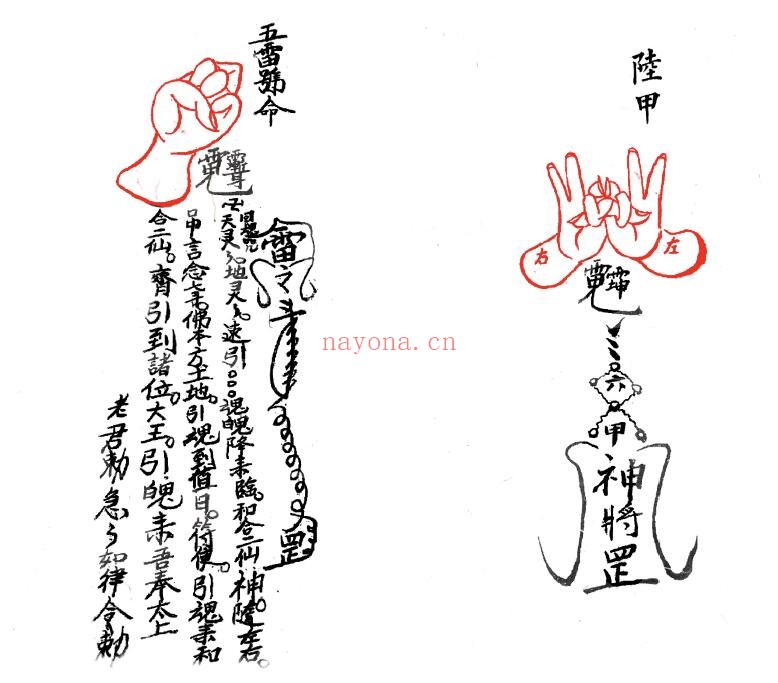 陸甲
右
左
六
甲
神將罡
五雷號命
雷令
罡
天灵々地灵々速引○○○魂魄降来臨。和合二仙神。隨左右。
吊言念七千佛本方土地。引魂到值日。符使。引魂来和
合二仙。齊引到諸位。大王。引魄来吾奉太上
老君勅急々如律令勅
nayona.cn